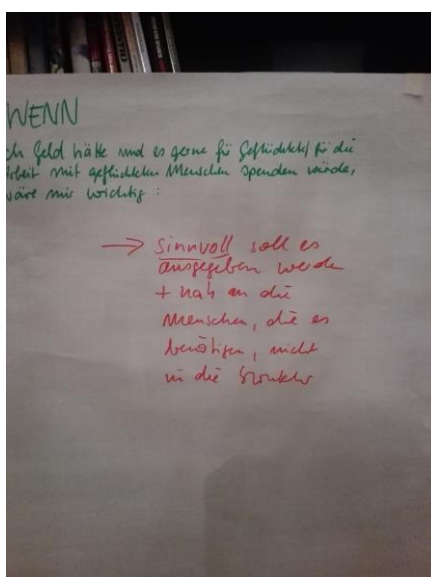 WENN
ch Geld hätte und es gerne für Geflüchtete/ für die
rbeit mit geflüchteten Menschen spenden würde,
wäre mir wichtig :
→ Sinnvoll soll es
ausgegeben werden
+ nah an die
Menschen, die es
benötigen, nicht
in die